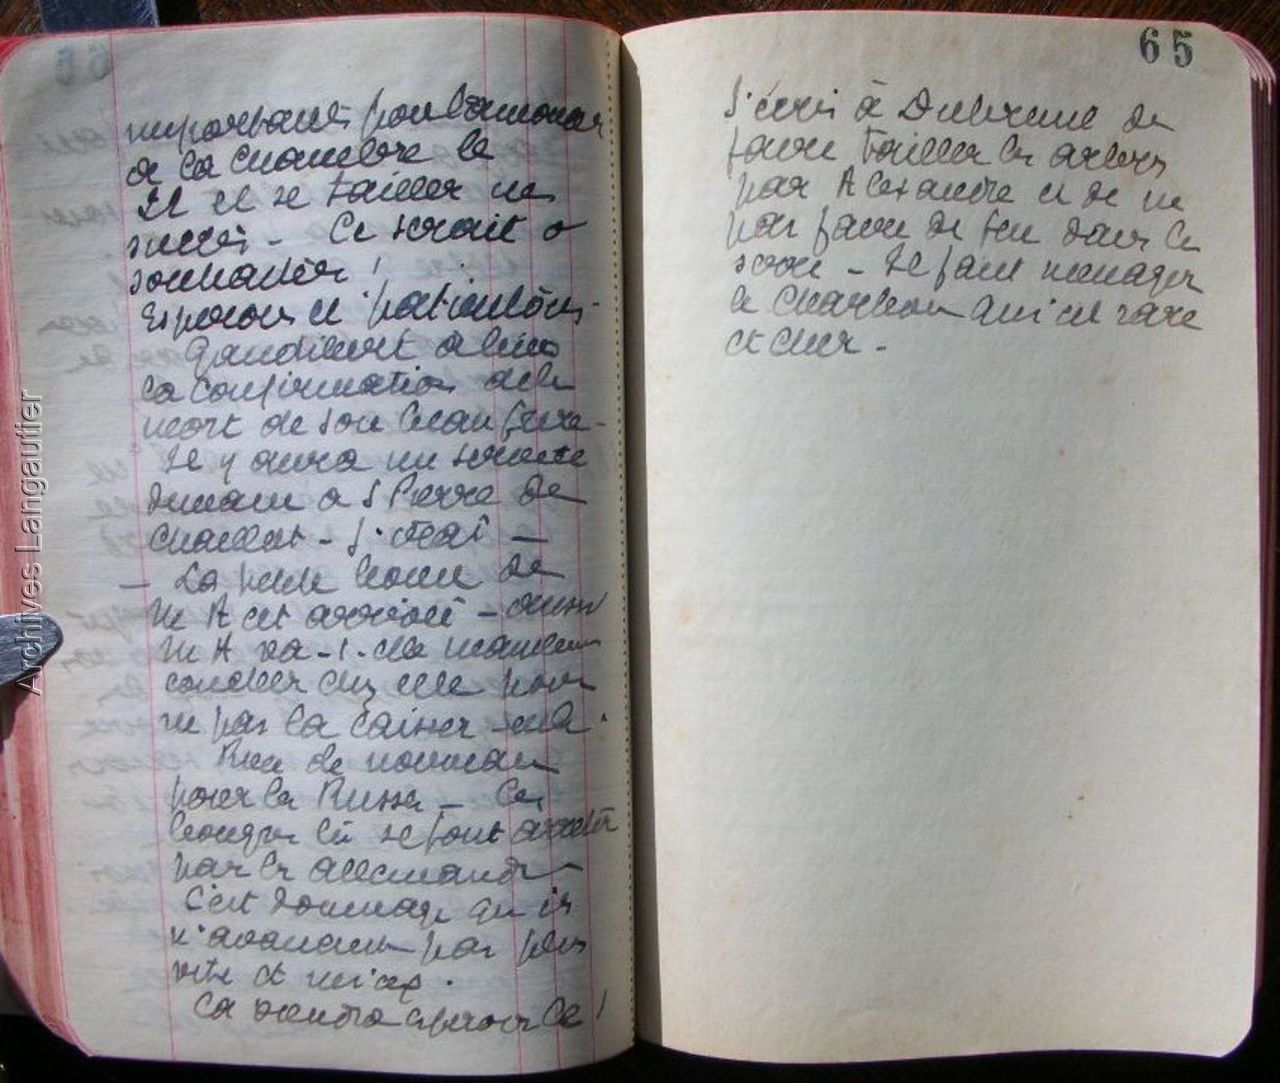 importants pour l'amener
à la Chambre le
Il et se tailler un
succès - Ce serait à
souhaiter !
Espérons et patientons -
Gaudibert a eu
la confirmation de la
mort de son beau frère -
Il y aura un service
demain à S Pierre de
Chaillot - J'irai -
- La petite bonne de
M A est arrivée - aussi
M A va-t-elle maintenant
coucher chez elle pour
ne pas la laisser seule.
Rien de nouveau
pour la Russie - Les
bougres là se font arrêter
par les allemands -
C'est dommage qu'ils
n'avancent pas plus
vite et mieux.
Ca viendra espérons le !
65
J'écris à de
faire tailler les arbres
par Alexandre et de ne
pas faire de feu dans la
serre - Il faut ménager
le Charbon qui est rare
et cher -
Archives Langautier